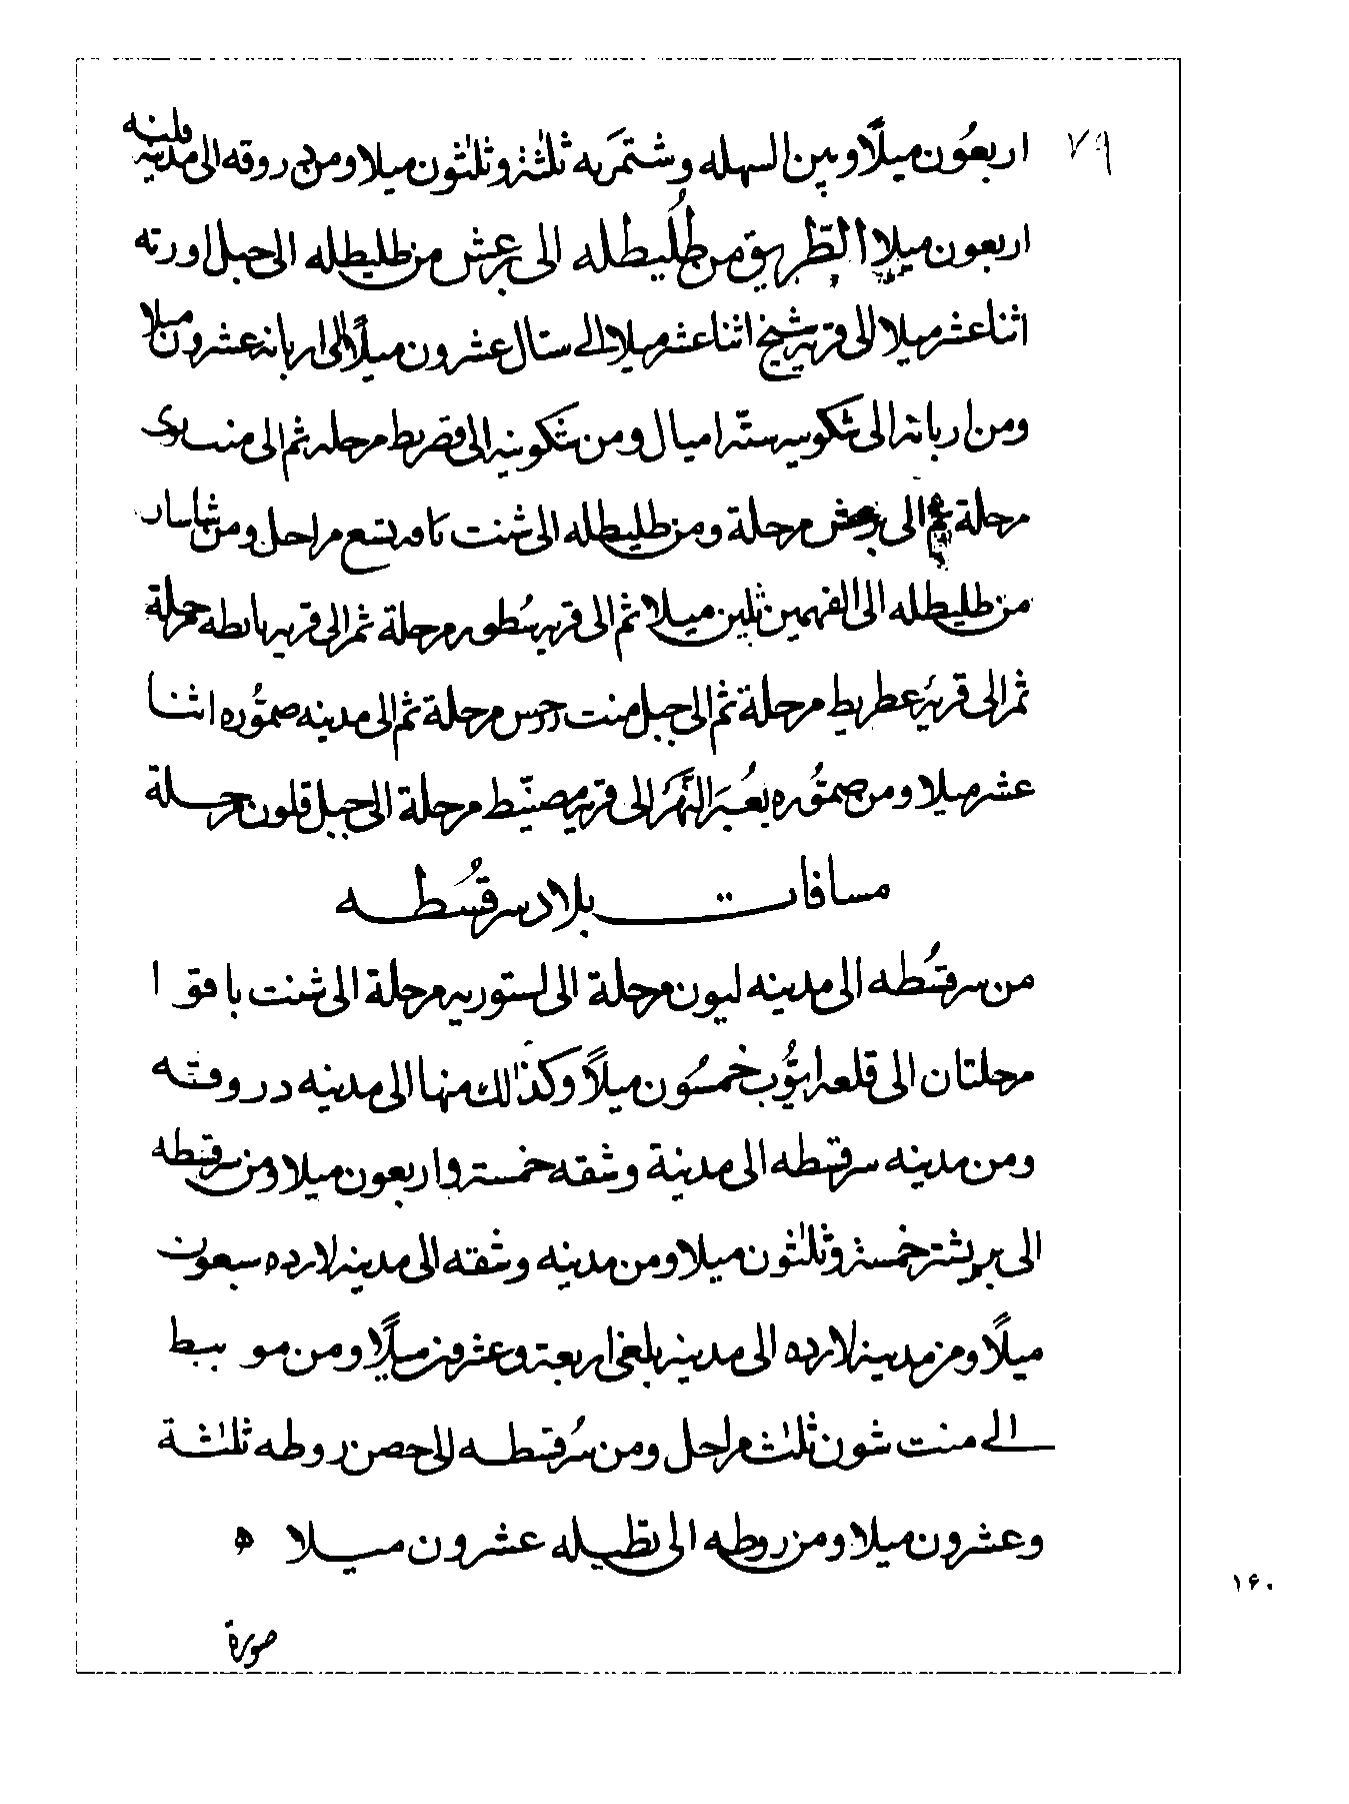 ٧٩
اربعُون ميلًا وبين السهله وشتمَريه ثلٰثة وثلٰثون ميلا ومن دروقه الى مدينة قلنبه
اربعون ميلا الطّريق من طُليطله الى برعش من طليطله الى جبل اورته
اثنا عشر ميلا الى قرية شيخ اثنا عشر ميلا الى ستال عشرون ميلًا الى اربانه عشرون ميلا
ومن اربانه الى شكوبيه ستّه اميال ومن شكوبيه الى قصريط مرحله ثم الى منت
مرحلة ثم الى برعش مرحلة ومن طليطله الى شنت تسع مراحل ومن
من طليطله الى الفهمين ثلثين ميلا ثم الى قرية مرحلة ثم الى قريه بابطه مرحلة
ثم الى قرية عطريط مرحلة ثم الى جبل منت مرحلة ثم الى مدينه صمُّوره اثنا
عشر ميلا ومن صمُّوره يعُبَر النّهَر الى قرية مصنيّط مرحلة الى جبل قلون مرحلة
مسافات بلاد سرقُسَطه
من سرقسُطه الى مدينه ليون مرحلة الى لستوريه مرحلة الى شنت باقوا
مرحلتان الى قلعه ايّوُب خمسُون ميلًا وكذٰلك منها الى مدينه دروقه
ومن مدينه سرقسطه الى مدينة وشقه خمسة واربعون ميلا ومن سرقسطه
الى بربشتر خمسة وثلٰثون ميلا ومن مدينه وشقه الى مدينه لارده سبعون
ميلًا ومن مدينه لارده الى مدينه بلغى اربعة وعشرون ميلًا ومن
الى منت شون ثلٰث مراحل ومن سرُقسطه الى حصن روطه ثلٰثة
وعشرون ميلا ومن روطه الى تطيله عشرون ميلا ه
صورة
١۶٠